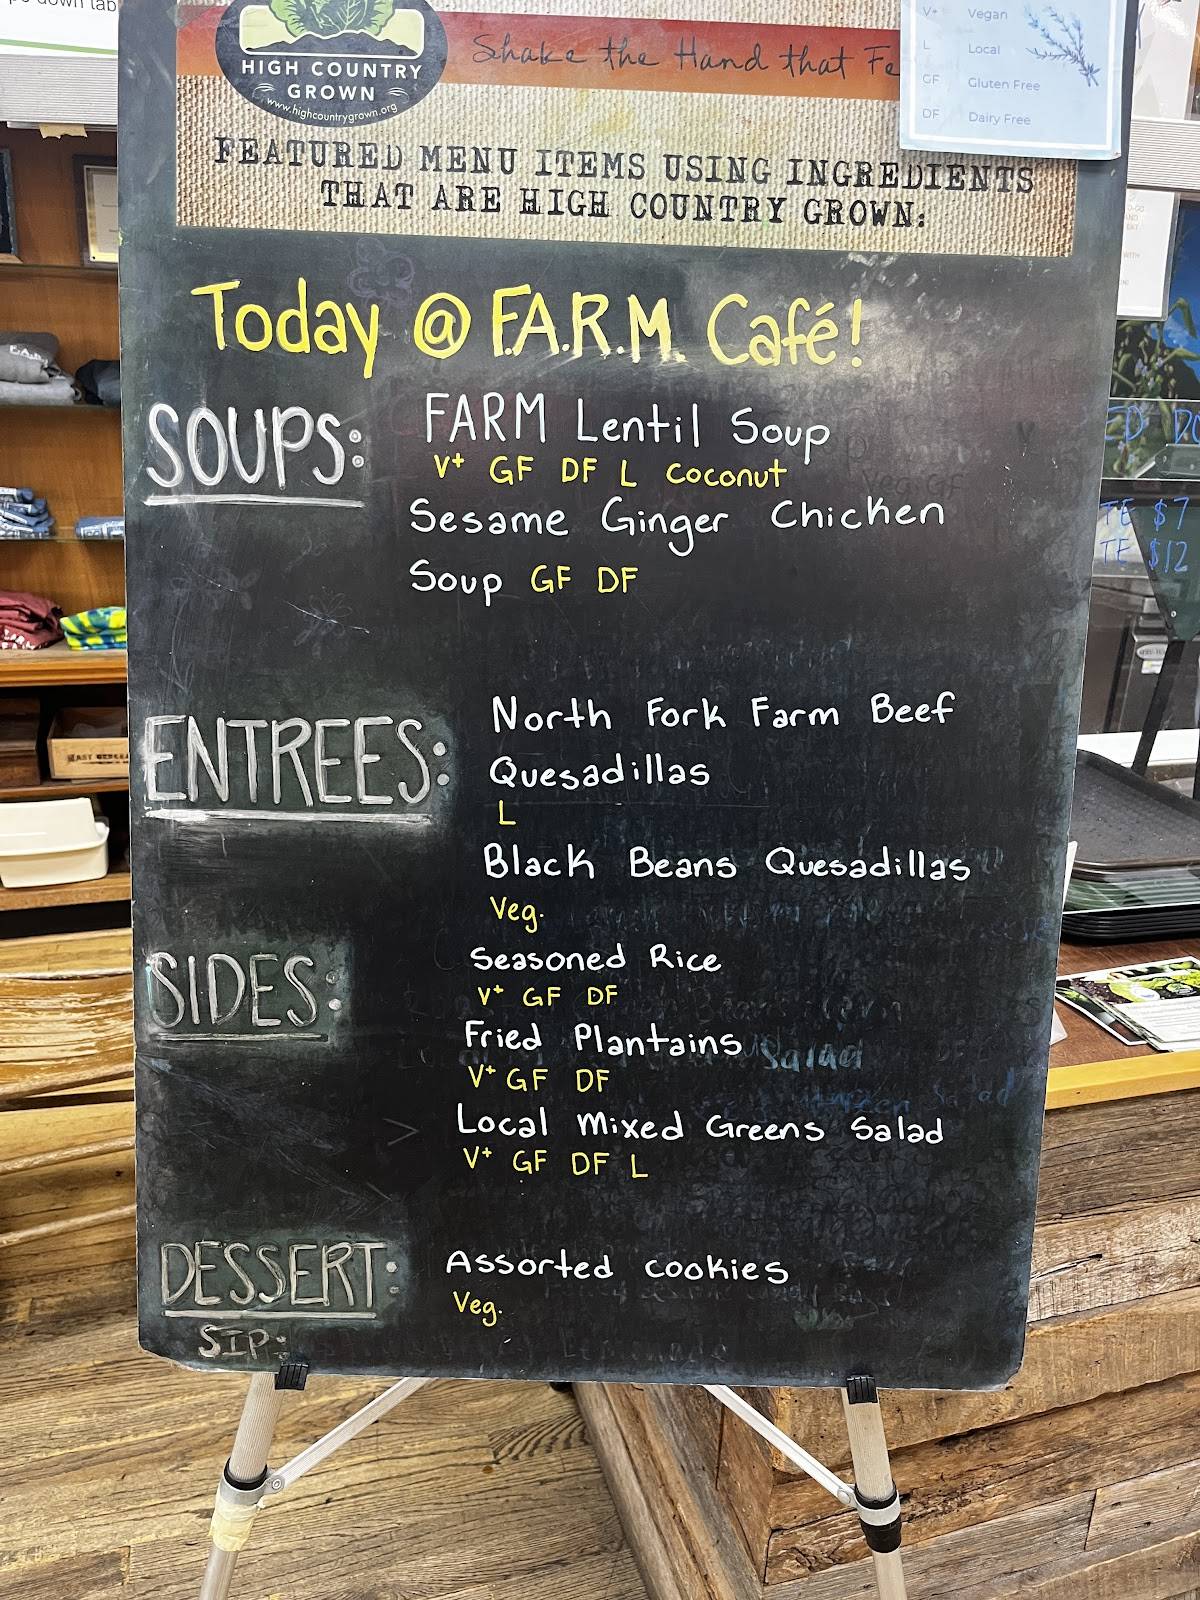 HIGH COUNTRY
GROWN
www.highcountrygrown.org
Shake the Hand that Fe
V+ Vegan
L Local
GF Gluten Free
DF Dairy Free
FEATURED MENU ITEMS USING INGREDIENTS
THAT ARE HIGH COUNTRY GROWN:
Today @ F.A.R.M. Café!
SOUPS:
FARM Lentil Soup
V+ GF DF L Coconut
Sesame Ginger Chicken
Soup GF DF
ENTREES:
North Fork Farm Beef
Quesadillas
L
Black Beans Quesadillas
Veg.
SIDES:
Seasoned Rice
V+ GF DF
Fried Plantains
V+ GF DF
Local Mixed Greens Salad
V+ GF DF L
DESSERT:
Assorted cookies
Veg.
SIP:
TE $7
TE $12